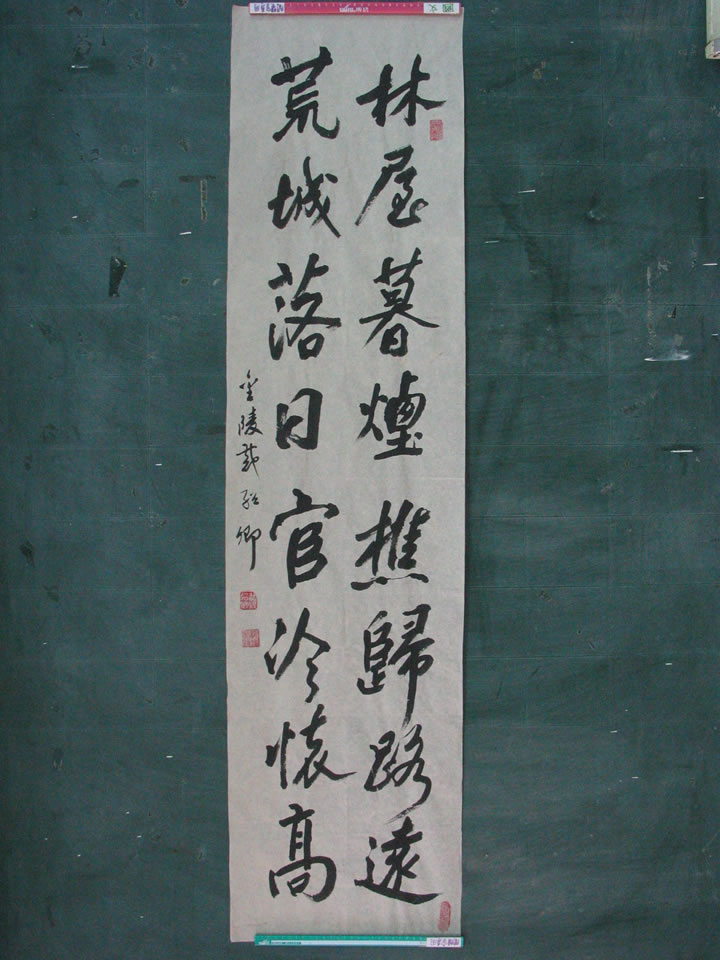 林屋暮煙樵歸路遠
荒城落日官冷懷高
金陵戴卿